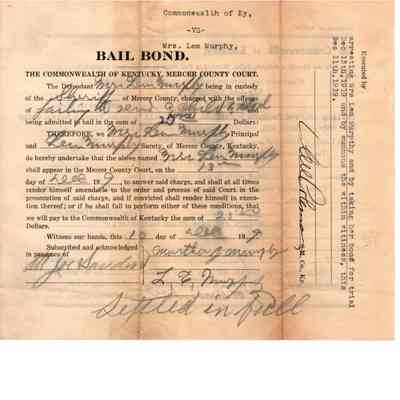 Commonwealth of Ky,
-VS-
Mrs. Lem Murphy,
BAIL BOND.
THE COMMONWEALTH OF KENTUCKY, MERCER COUNTY COURT.
The Defendant Mrs Lem Murphy being in custody
of the Sheriff of Mercer County, charged with the offense
of failing to send a child to school and
being admitted to bail in the sum of 25.00 Dollars:
THEREFORE, we Mrs Lem Murphy Principal
and Lem Murphy Surety, of Mercer County, Kentucky,
do hereby undertake that the above named Mrs Lem Murphy
shall appear in the Mercer County Court, on the 13
day of Dec 19 9, to answer said charge, and shall at all times
render himself amendable to the order and process of said Court in the
prosecution of said charge, and if convicted shall render himself in execu-
tion thereof; or if he shall fail to perform either of these conditions, that
we will pay to the Commonwealth of Kentucky the sum of 25.00
Dollars.
Witness our hands, this day of Dec 19 9
Subscribed and acknowledged
in presence of
Martha J Murphy
L. E. Murphy
Settled in full
Executed by
arresting Mrs Lem Murphy and by taking her bond for trial
Dec 13th, 1919 and by summons the within witness, this
Dec 11th, 1919.
M. Co. Ky.